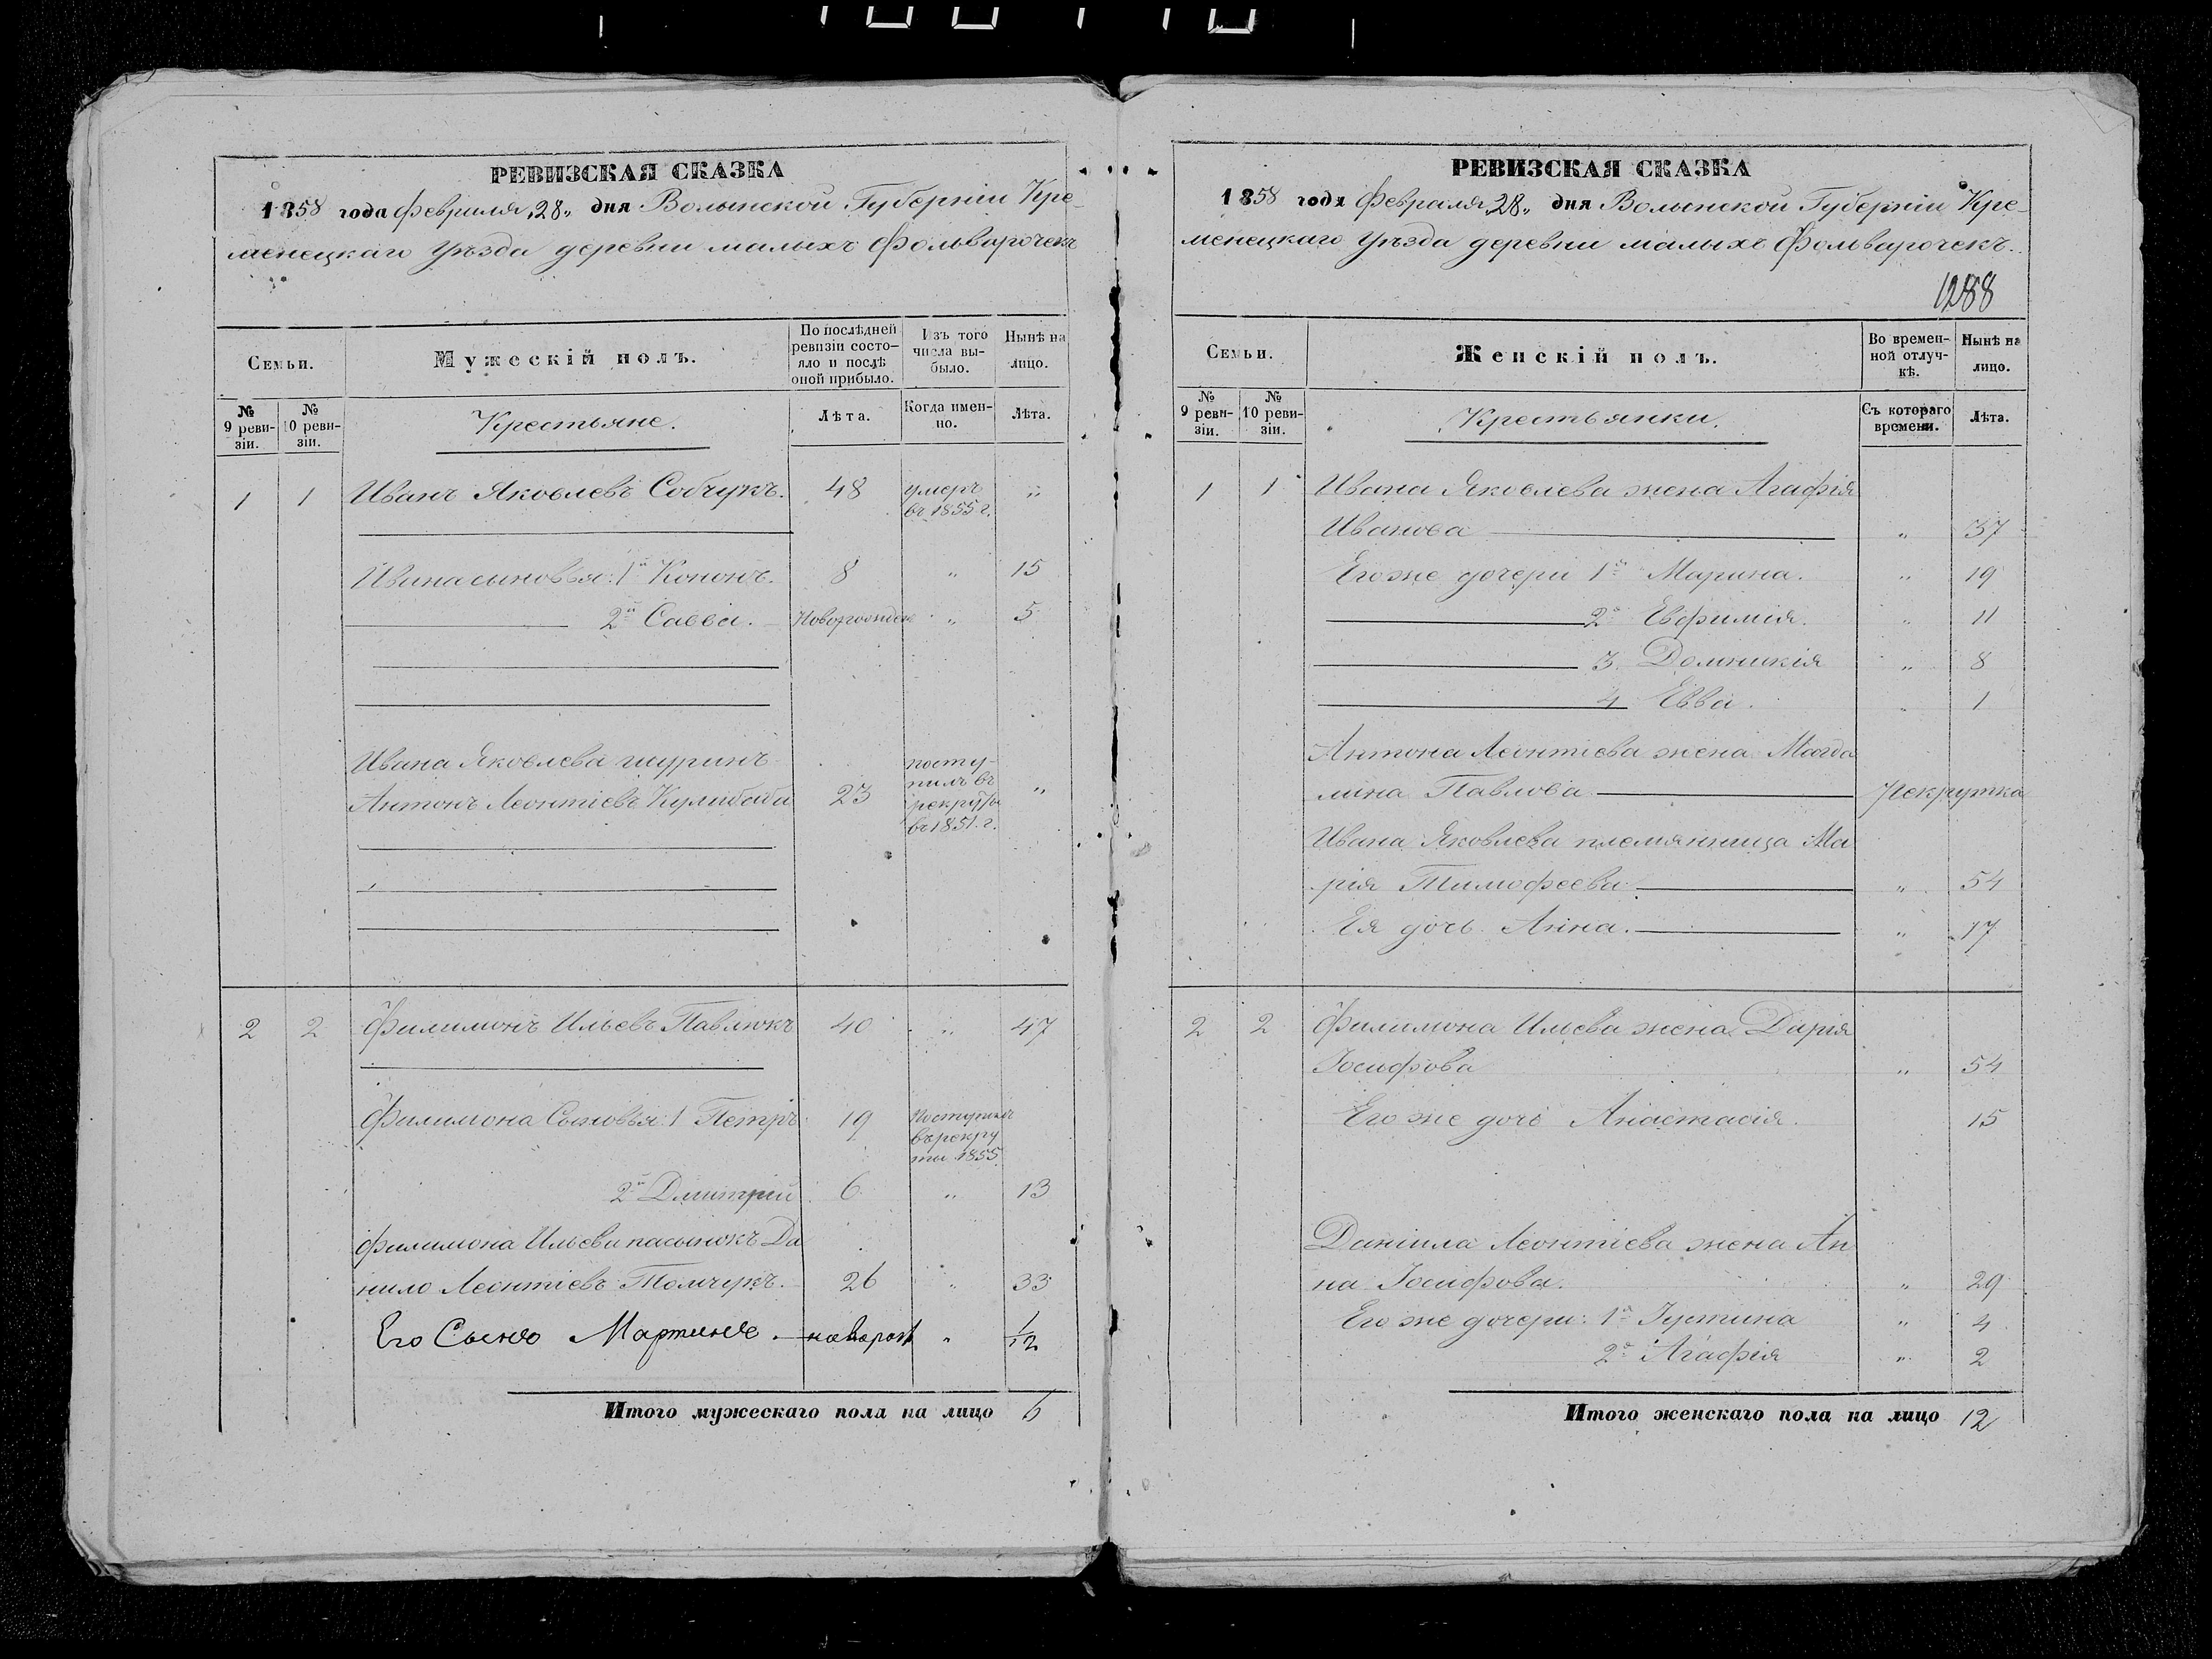 РЕВИЗСКАЯ СКАЗКА
1858 года февраля „28„ дня Волынской Губерніи Кре-
менецкаго Уѣзда деревни малыхъ Фольварочекъ
Семьи.
Мужескій полъ.
По послѣдней
ревизіи состо-
яло и послѣ
оной прибыло.
Изъ того
числа вы-
было.
Нынѣ на
лицо.
№
9 реви-
зіи.
№
10 реви-
зіи.
Крестьяне.
Лѣта.
Когда имен-
но.
Лѣта.
1 1 Иванъ Яковлевъ Собчукъ. 48 умеръ „
въ 1855 г.
Ивана сыновья: 1й Кононъ. 8 „ 15
2й Савва. Новорожден „ 5
Ивана Яковлева шуринъ посту-
пилъ въ
Антонъ Леонтіевъ Кулибаба 23 рекруты „
въ 1851 г.
2 2 Филимонъ Ильевъ Павлюкъ 40 „ 47
Филимона Сыновья: 1 Петръ 19 Поступилъ
въ рекру
ты 1855
2й Дмитрій 6 „ 13
Филимона Ильева пасынокъ Да
нило Леонтіевъ Томчукъ. 26 „ 33
Его Сынъ Мартинъ. новорож „ 1/12
Итого мужескаго пола на лицо 6
РЕВИЗСКАЯ СКАЗКА
1858 года Февраля „28„ дня Волынской Губерніи Кре-
менецкаго Уѣзда деревни малыхъ Фольварочекъ.
1288
Семьи.
Женскій полъ.
Во времен-
ной отлуч-
кѣ.
Нынѣ на
лицо.
№
9 реви-
зіи.
№
10 реви-
зіи.
Крестьянки.
Съ котораго
времени.
Лѣта.
1 1 Ивана Яковлева жена Агафія
Иванова „ 37
Его же дочери 1я Марина. „ 19
2я Евфимія. „ 11
3. Домникія „ 8
4 Евва. „ 1
Антона Леонтіева жена Магда
лина Павлова Рекрутка
Ивана Яковлева племянница Ма
рія Тимофеева „ 54
Ея дочь Анна. „ 17
2 2 Филимона Ильева жена Дарія
Іосифова „ 54
Его же дочь Анастасія. 15
Даніила Леонтіева жена Ан
на Іосифова. „ 29
Его же дочери: 1я Іустина „ 4
2я Агафія „ 2
Итого женскаго пола на лицо 12